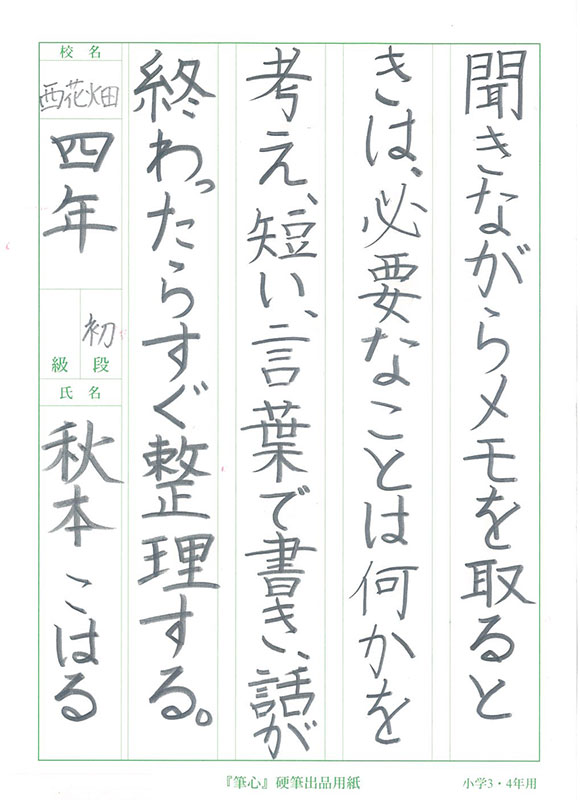 聞きながらメモを取ると
きは、必要なことは何かを
考え、短い、言葉で書き、話が
終わったらすぐ整理する。
校名
西花畑
四年
初
級 段
氏名
秋本 こはる
『筆心』硬筆出品用紙
小学3・4年用